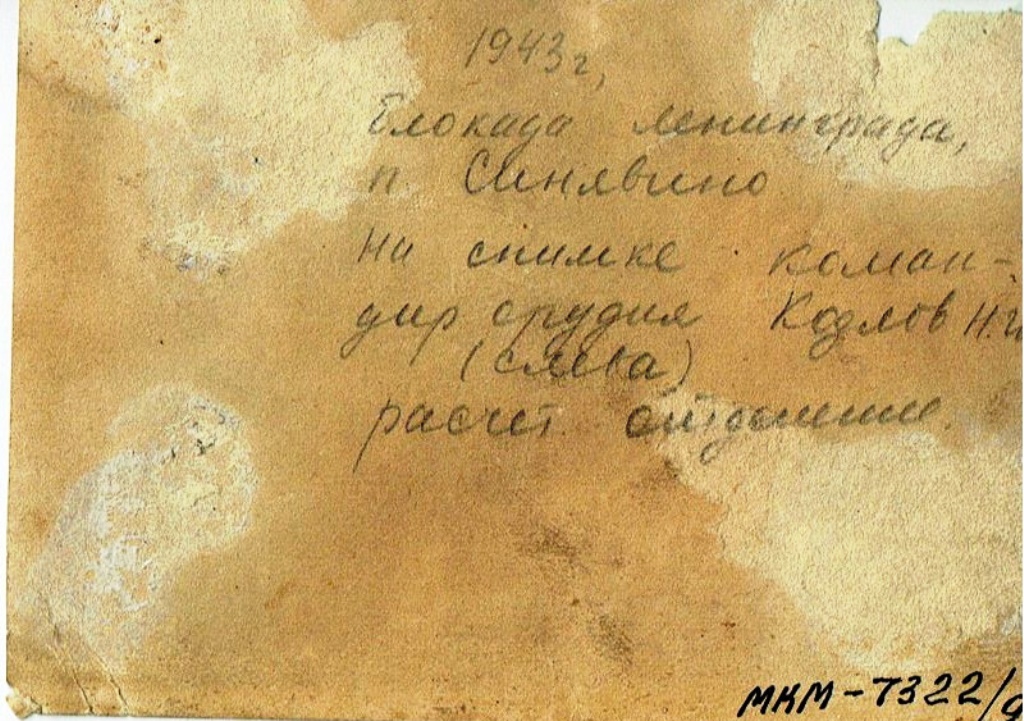 1943г,
Блокада Ленинграда,
п Синявино
На снимке коман-
дир орудия Козлов Н.И
(слева)
расчет отделение.
МКМ-7322/